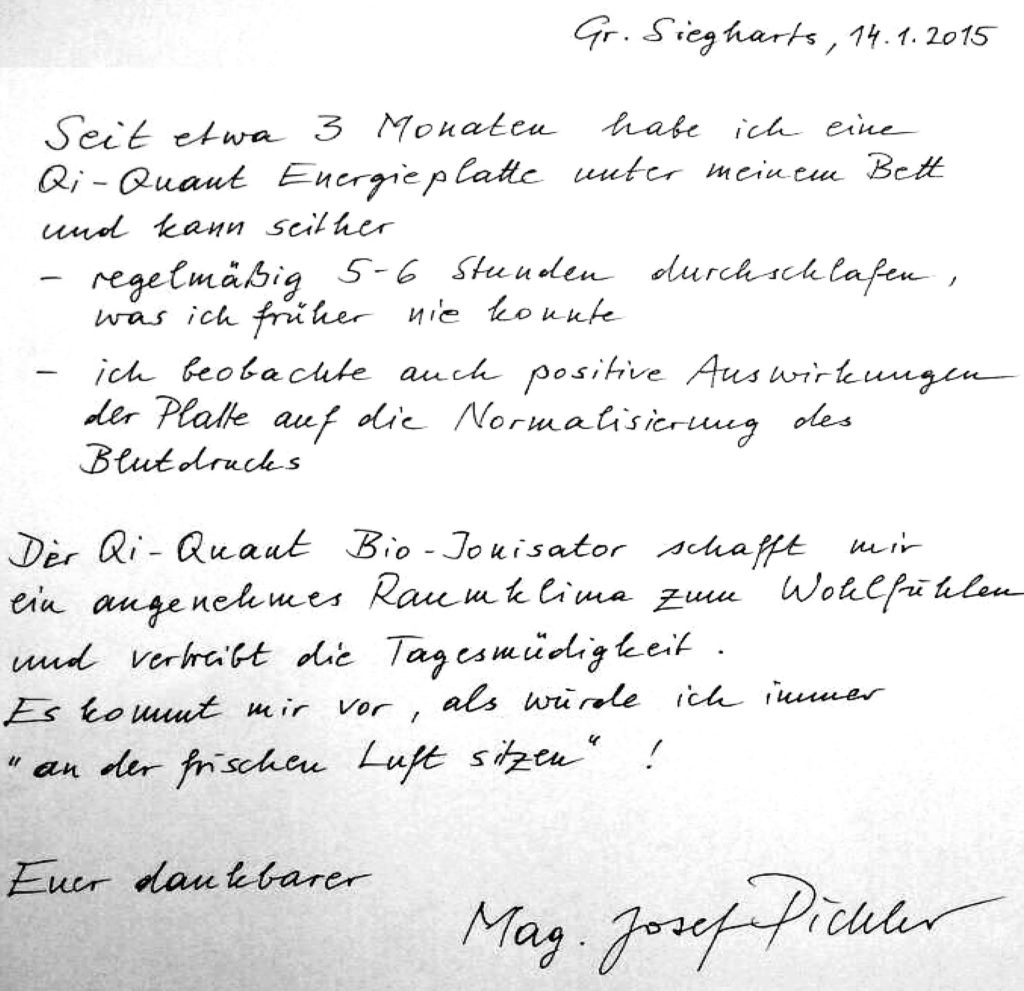 Gr. Siegharts, 14.1.2015
Seit etwa 3 Monaten habe ich eine
Qi-Quant Energieplatte unter meinem Bett
und kann seither
- regelmäßig 5-6 Stunden durchschlafen,
was ich früher nie konnte
- ich beobachte auch positive Auswirkungen
der Platte auf die Normalisierung des
Blutdrucks
Der Qi-Quant Bio-Ionisator schafft mir
ein angenehmes Raumklima zum Wohlfühlen
und vertreibt die Tagesmüdigkeit.
Es kommt mir vor, als würde ich immer
"an der frischen Luft sitzen" !
Euer dankbarer
Mag. Josef Pichler